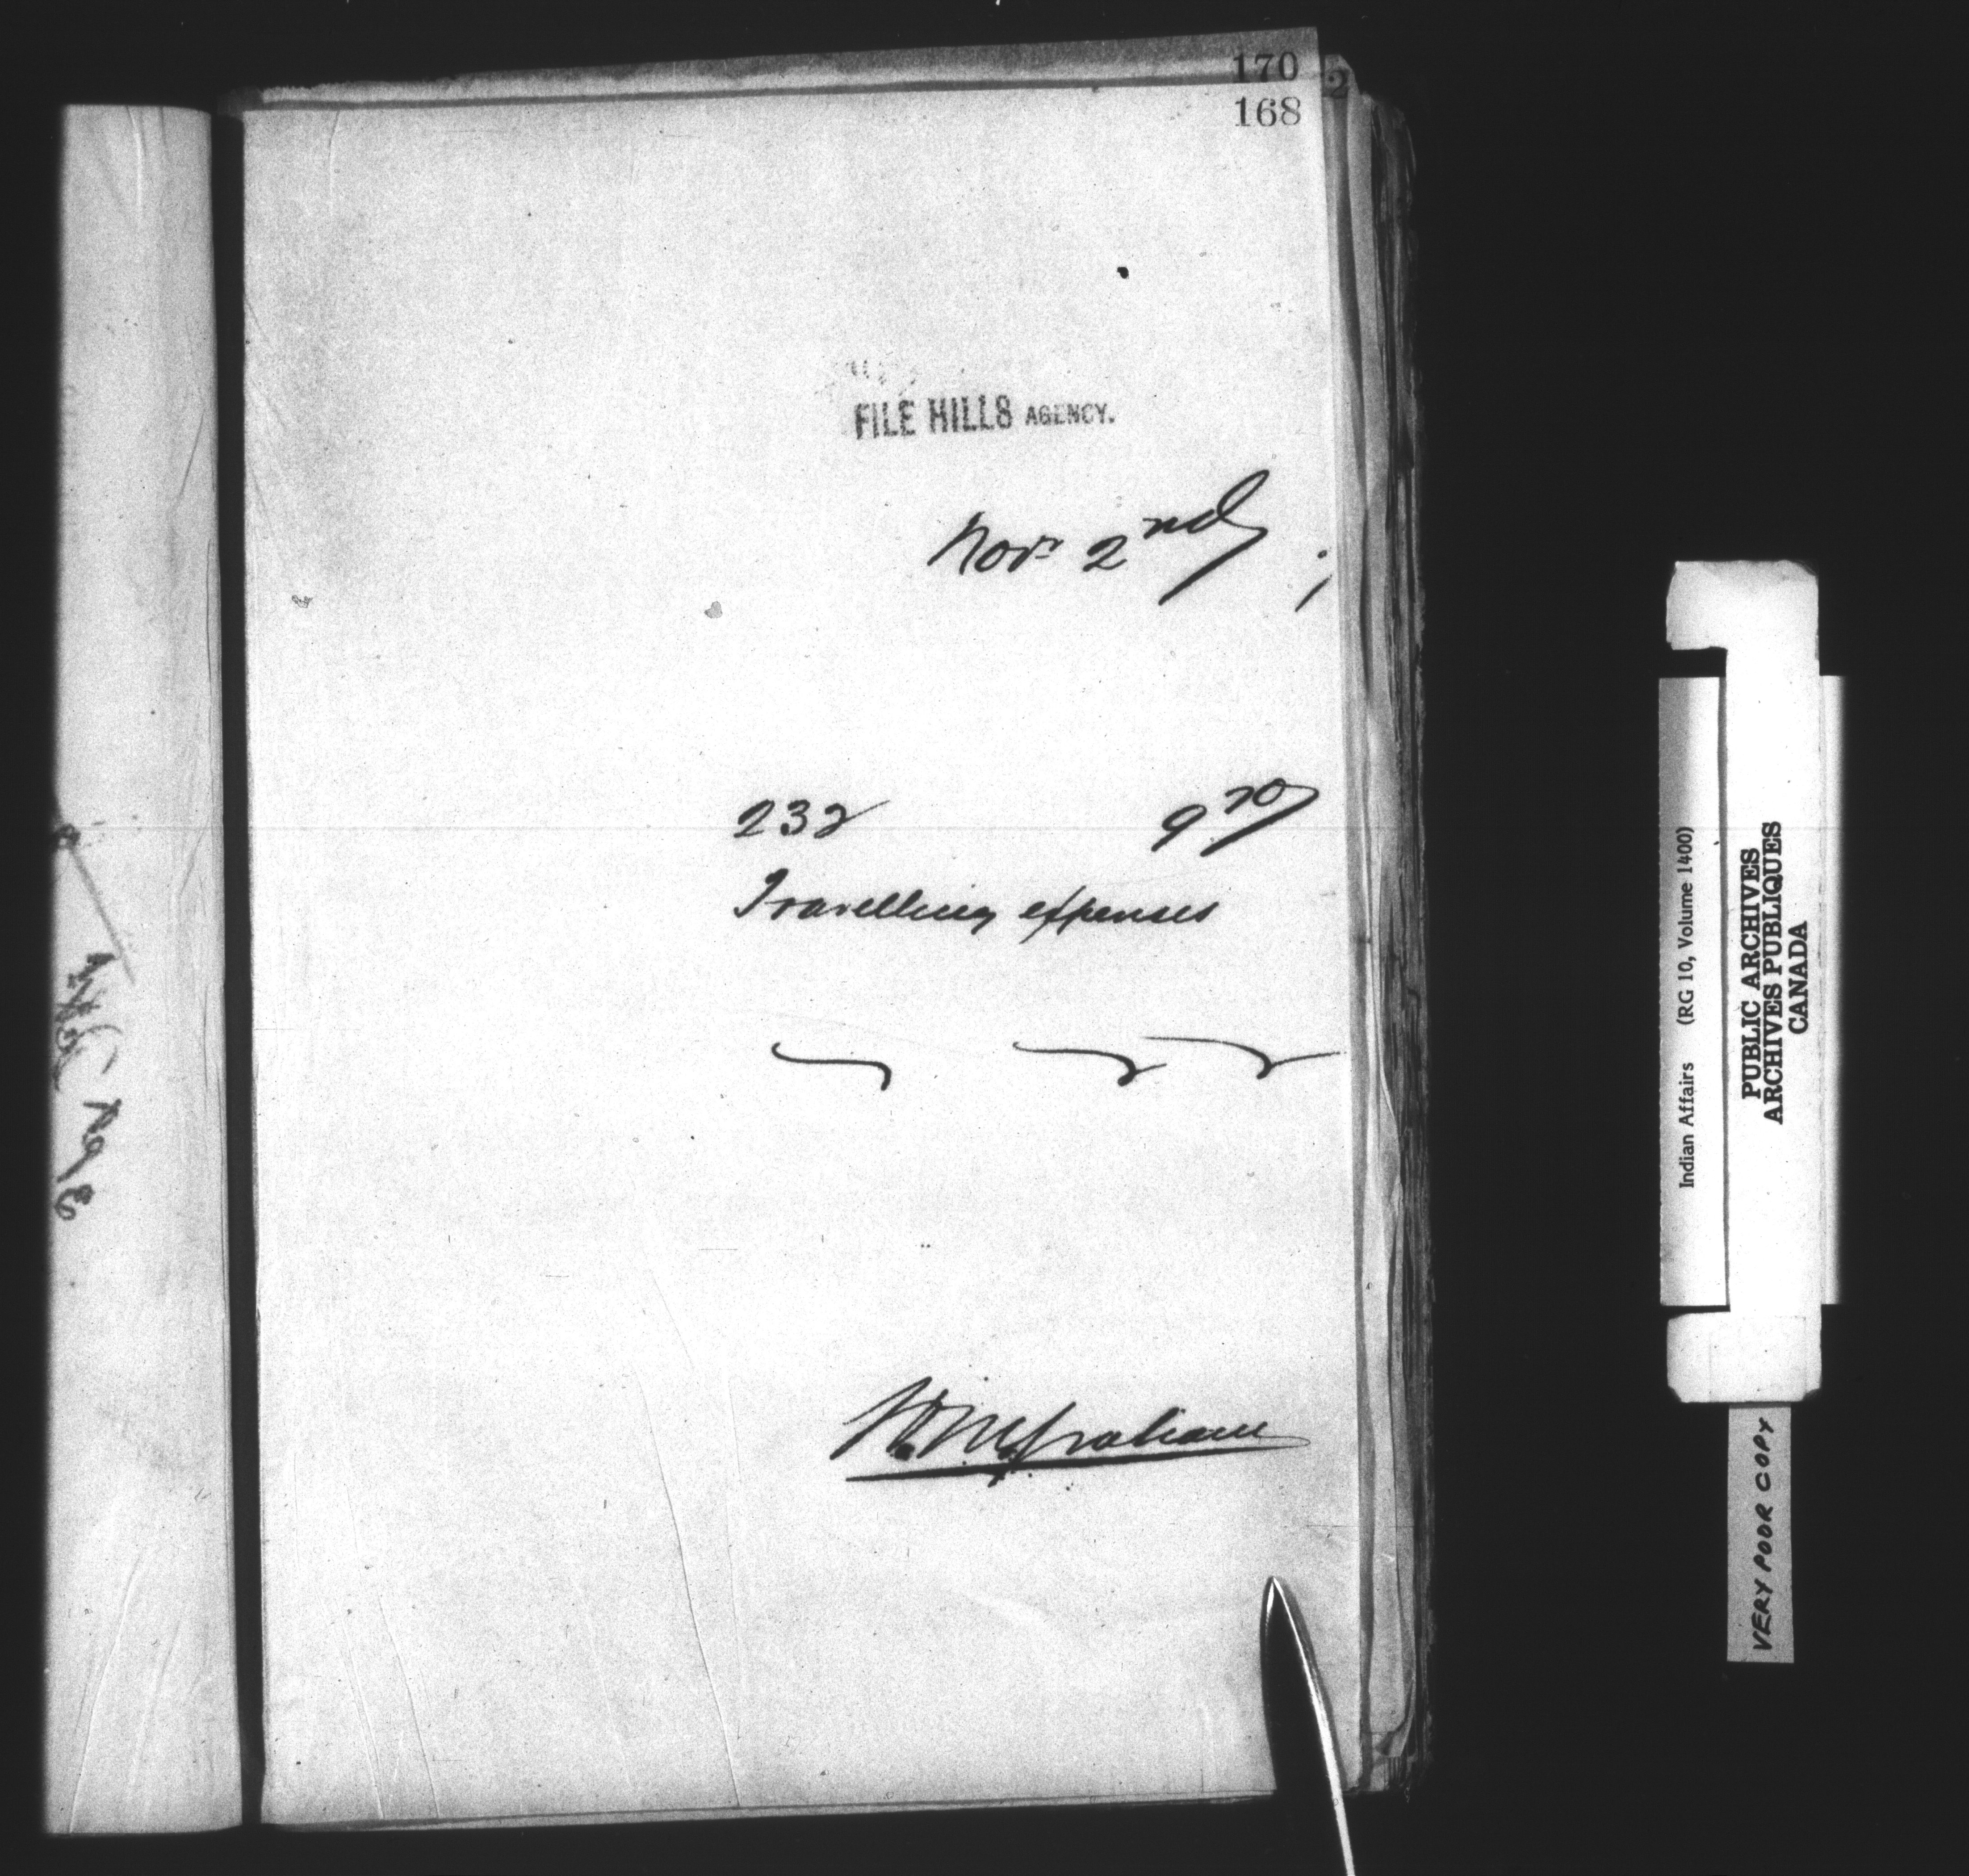 170
2
168
FILE HILLS AGENCY.
Nov 2nd
232 9.70
Travelling expenses
W M Graham
Indian Affairs (RG 10, Volume 1400)
PUBLIC ARCHIVES
ARCHIVES PUBLIQUES
CANADA
VERY POOR COPY